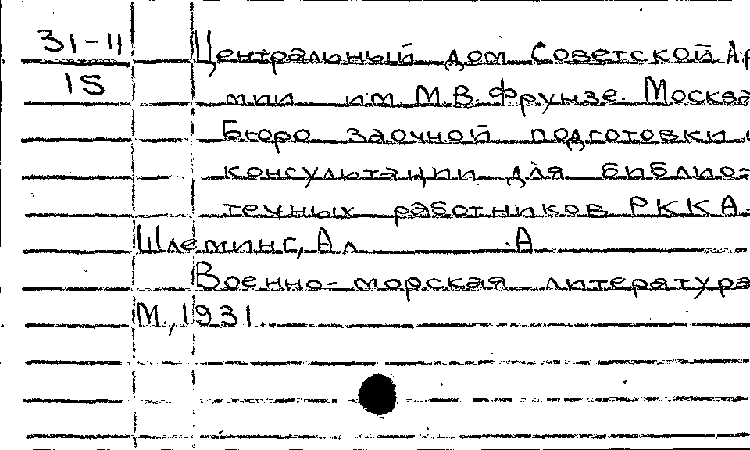 31-11
15
Центральный дом Советской Ар
мии им М.В.Фрунзе. Москва
Бюро заочной подготовки и
консультации для библио-
течных работников РККА.
Шлеминг, Ал А
Военно-морская литература
М., 1931